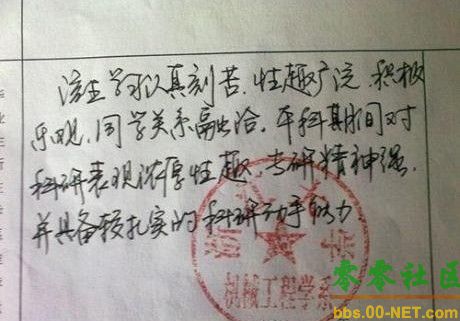 该生学习认真刻苦，性趣广泛，积极
乐观，同学关系融洽，本科期间对
科研表现浓厚性趣，专研精神强，
并具备较扎实的科研动手能力
浙 大 学
机械工程学系
零零社区
bbs.00-NET.com